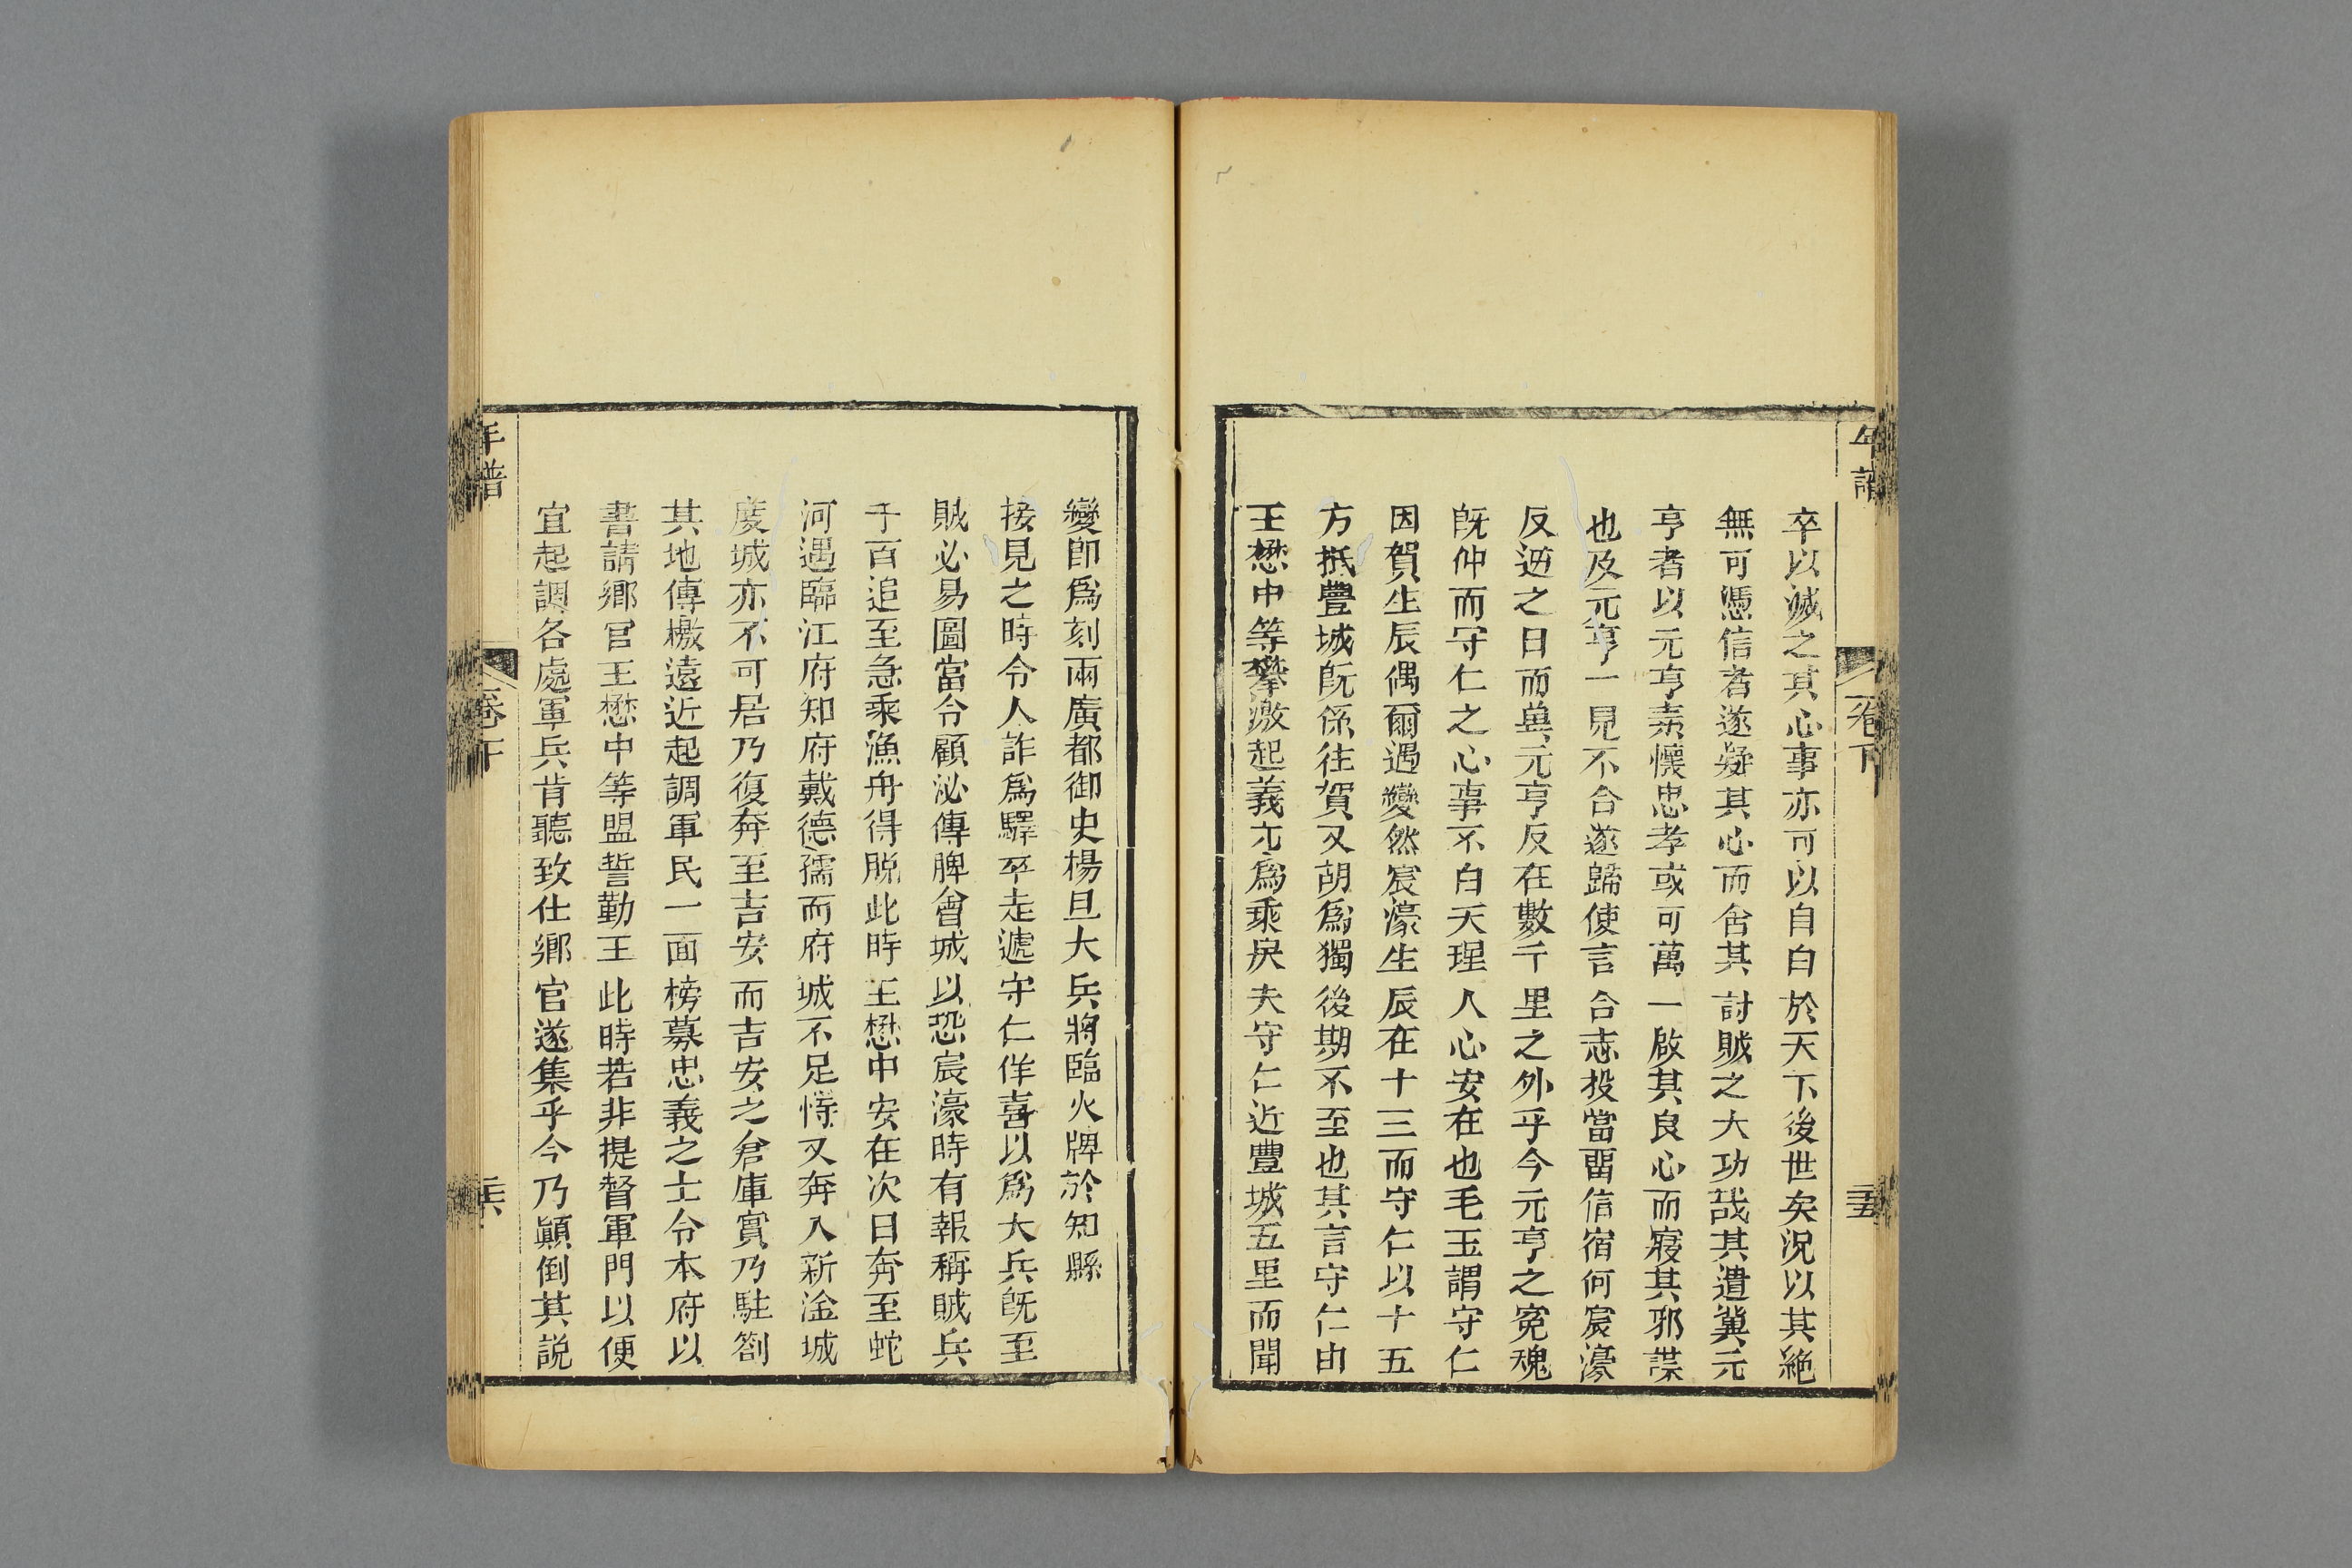 年譜
卷下
卒以滅之其心事亦可以自白於天下後世矣況以其絶
無可憑信者遂疑其心而舍其討賊之大功哉其遣冀元
亨者以元亨素懷忠孝或可萬一啟其良心而寢其邪謀
也及元亨一見不合遂歸使言合志投當畱信宿何宸濠
反逆之日而冀元亨反在數千里之外乎今元亨之冤魂
旣伸而守仁之心事不白天理人心安在也毛玉謂守仁
因賀生辰偶爾遇變然宸濠生辰在十三而守仁以十五
方抵豐城旣係往賀又胡爲獨後期不至也其言守仁由
王懋中等攀激起義尤爲乘戾夫守仁近豐城五里而聞
變卽爲刻兩廣都御史楊旦大兵將臨火牌於知縣
接見之時令人詐爲驛卒走遞守仁佯喜以爲大兵旣至
賊必易圖當令顧泌傳牌會城以恐宸濠時有報稱賊兵
千百追至急乘漁舟得脱此時王懋中安在次日奔至蛇
河遇臨江府知府戴德孺而府城不足恃又奔入新淦城
度城亦不可居乃復奔至吉安而吉安之倉庫實乃駐劄
其地傳檄遠近起調軍民一面榜募忠義之士令本府以
書請鄉官王懋中等盟誓勤王此時若非提督軍門以便
宜起調各處軍兵肯聽致仕鄉官遂集乎今乃顚倒其説
年譜
卷下